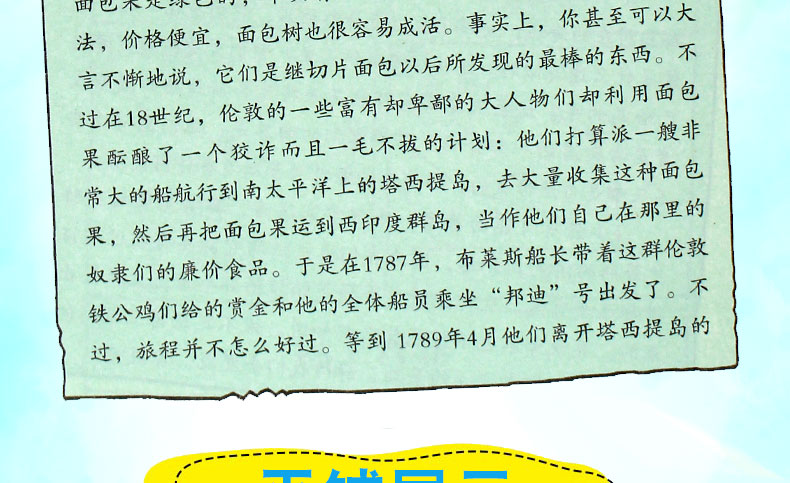 面包果是绿色的，
法，价格便宜，面包树也很容易成活。事实上，你甚至可以大
言不惭地说，它们是继切片面包以后所发现的最棒的东西。不
过在18世纪，伦敦的一些富有却卑鄙的大人物们却利用面包
果酝酿了一个狡诈而且一毛不拔的计划：他们打算派一艘非
常大的船航行到南太平洋上的塔西提岛，去大量收集这种面包
果，然后再把面包果运到西印度群岛，当作他们自己在那里的
奴隶们的廉价食品。于是在1787年，布莱斯船长带着这群伦敦
铁公鸡们给的赏金和他的全体船员乘坐“邦迪”号出发了。不
过，旅程并不怎么好过。等到 1789年4月他们离开塔西提岛的